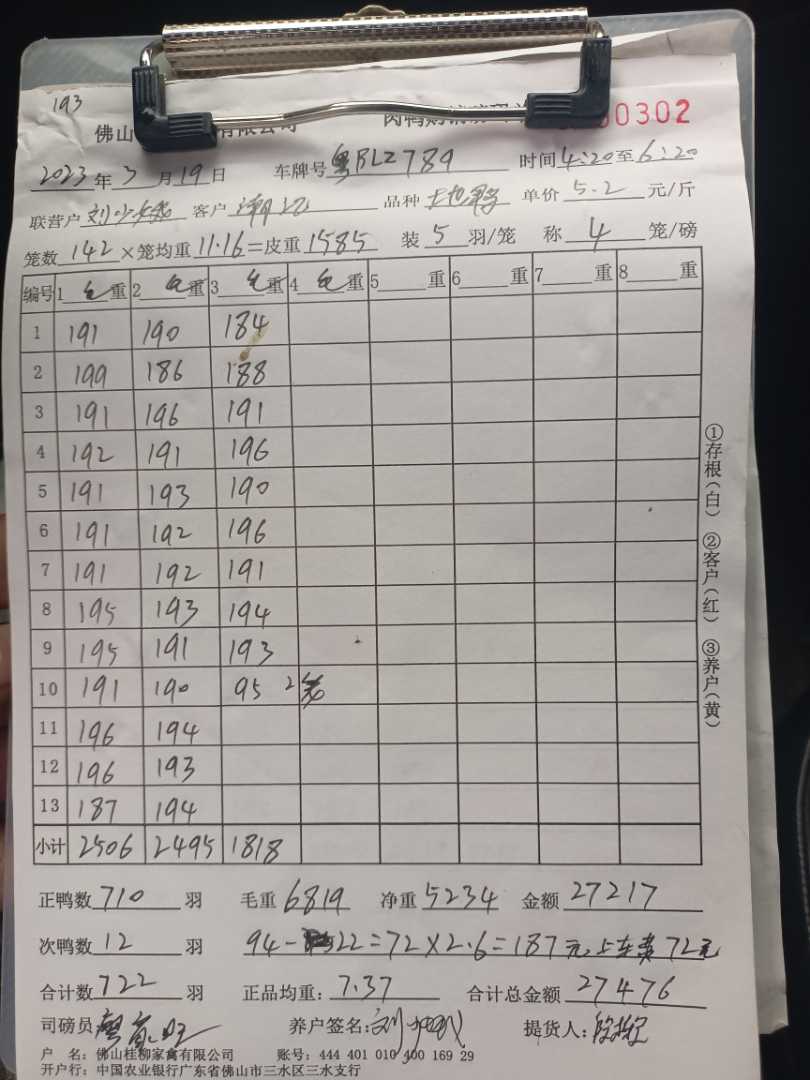 193
佛山 有限公司 肉鸭购销 00302
2023年3月19日 车牌号粤BLZ789 时间4:20至6:20
联营户刘 客户 品种 单价5.2元/斤
笼数142×笼均重11.16=皮重1585 装5羽/笼 称4笼/磅
编号 1毛重 2毛重 3毛重 4毛重 5 重 6 重 7 重 8 重
1 191 190 184
2 199 186 188
3 191 196 191
4 192 191 196
5 191 193 190
6 191 192 196
7 191 192 191
8 195 193 194
9 195 191 193
10 191 190 95 2笼
11 196 194
12 196 193
13 187 194
小计 2506 2495 1818
正鸭数710羽 毛重6819 净重5234 金额27217
次鸭数12羽 94-22=72×2.6=187元 上车费72元
合计数722羽 正品均重:7.37 合计总金额27476
司磅员 养户签名:刘 提货人:
户 名:佛山桂柳家禽有限公司 账号:444 401 010 400 169 29
开户行:中国农业银行广东省佛山市三水区三水支行
①存根(白) ②客户(红) ③养户(黄)